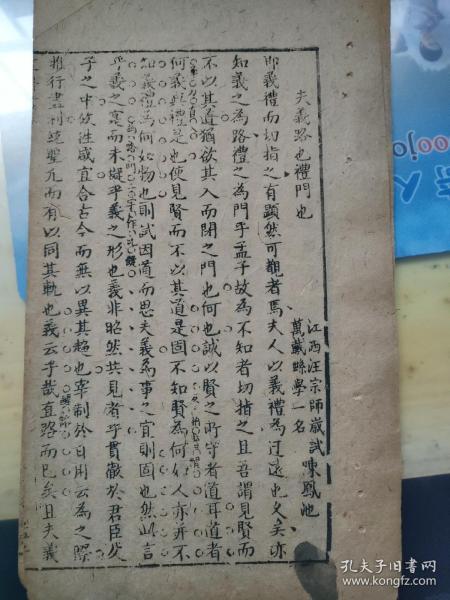 夫義路也禮門也
江西汪宗師歲試陳鳳池
萬載縣學一名
即義禮而切指之有顯然可觀者焉夫人以義禮為迂遠也久矣亦
知義之為路禮之為門乎孟子故為不知者切指之且吾謂見賢而
不以其道猶欲其入而閉之門也何也誠以賢之所守者道耳道者
何義與禮是也使見賢而不以其道是固不知賢為何如人亦并不
知義禮為何如物也則試因道而思夫義為事之宜則固也然此言
乎義之實而未擬乎義之形也義非昭然共見者乎貫徹於君臣父
子之中攸性咸宜合古今而無以異其趨也宰制於日用云為之際
推行盡利統聖凡而有以同其軌也義云乎哉直路而已矣且夫義
孔夫子旧书网
www.kongfz.com